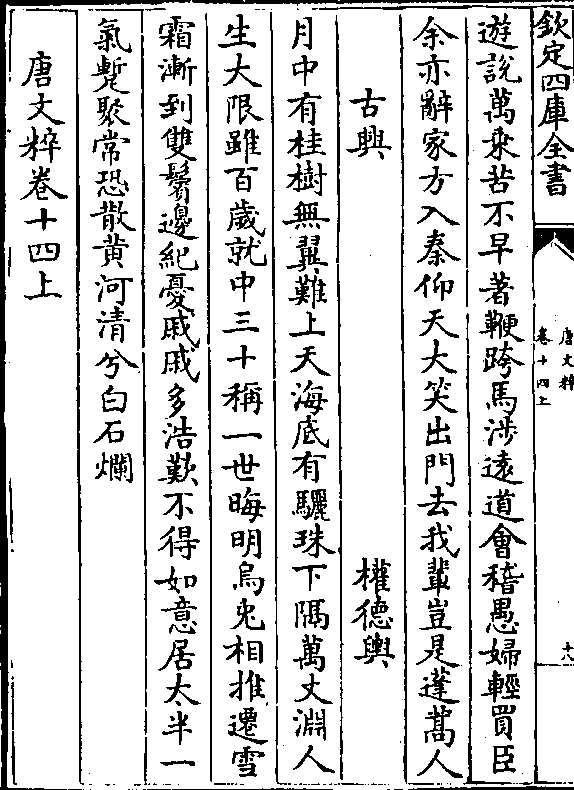 欽定四庫全書
唐文粹
卷十四上
十八
遊說萬乘苦不早著鞭跨馬涉遠道會稽愚婦輕買臣
余亦辭家方入秦仰天大笑出門去我輩豈是蓬蒿人
古興
權德輿
月中有桂樹無翼難上天海底有驪珠下隔萬丈淵人
生大限雖百歲就中三十稱一世晦明烏兎相推遷雪
霜漸到雙鬢邊紀憂戚戚多浩歎不得如意居太半一
氣蹔聚常恐散黄河清兮白石爛
唐文粹卷十四上